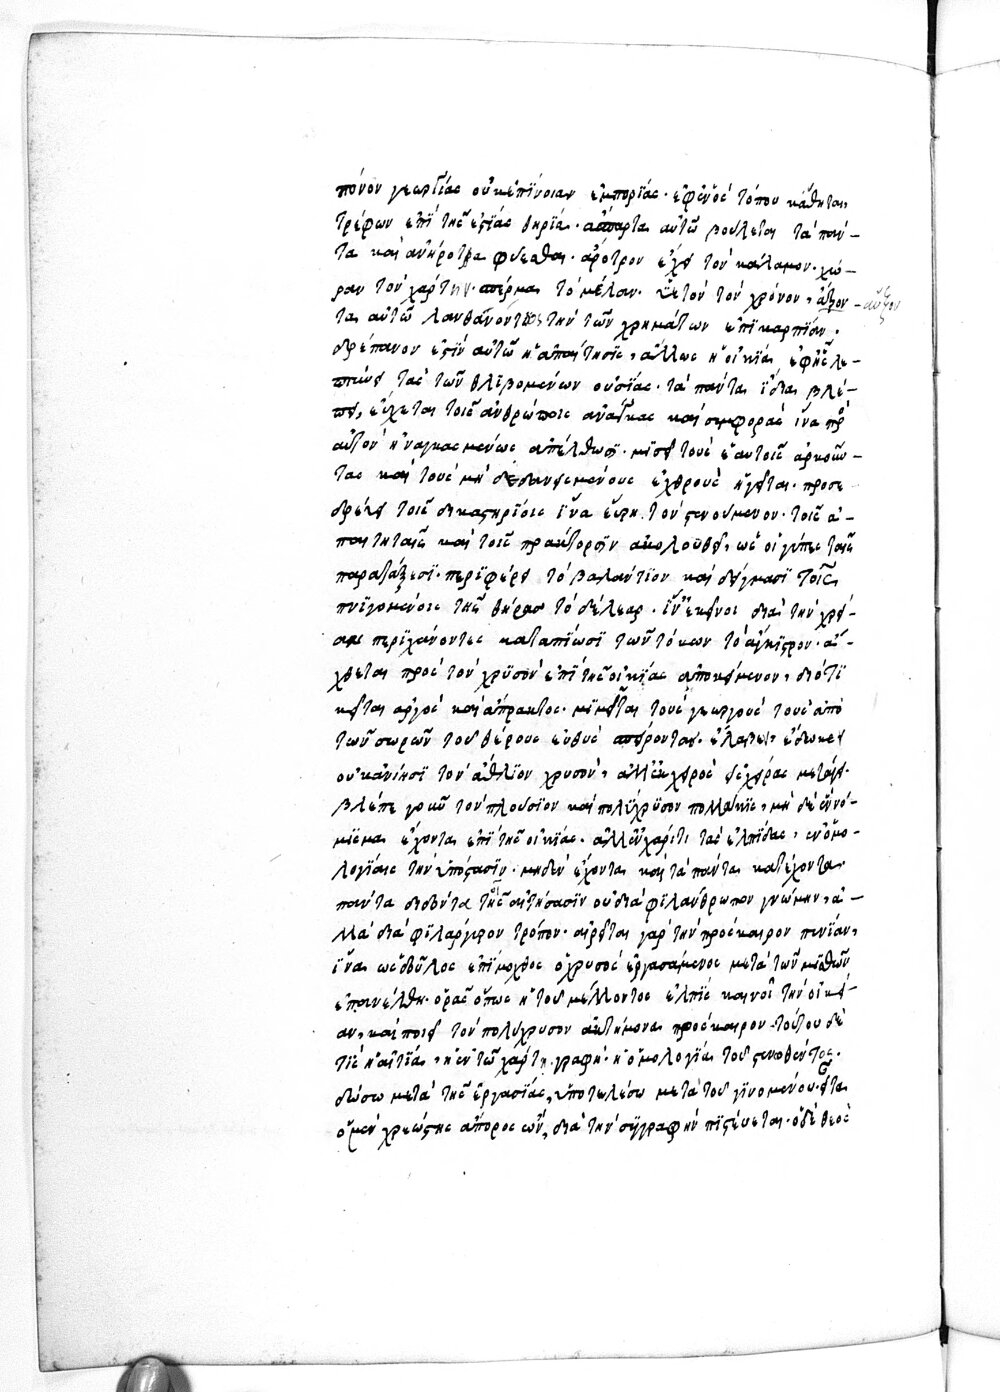 πόνον γεωργίας οὐκ ἐπίνοιαν ἐμπορίας· ἐφ' ἑνὸς τόπου κάθηται
τρέφων ἐπὶ τῆς ἑστίας θηρία· ἄσπαρτα αὐτῷ βούλεται τὰ πάν-
τα καὶ ἀνήροτα φύεσθαι· ἄροτρον ἔχει τὸν κάλαμον· χώ-
ραν τὸν χάρτην· σπέρμα τὸ μέλαν· ὑετὸν τὸν χρόνον, ἄξον- αὔξον
τα αὐτῷ λανθανόντως τὴν τῶν χρημάτων ἐπικαρπίαν·
δρέπανον ἐστὶν αὐτῷ ἡ ἀπαίτησις, ἄλλως ἡ οἰκία ἐφ' ἧς λε-
πτύνει τὰς τῶν θλιβομένων οὐσίας· τὰ πάντα ἴδια βλέ-
πει, εὔχεται τοῖς ἀνθρώποις ἀνάγκας καὶ συμφορὰς ἵνα πρὸς
αὐτὸν ἠναγκασμένως ἀπέλθωσι· μισεῖ τοὺς ἑαυτοῖς ἀρκοῦν-
τας καὶ τοὺς μὴ δεδανεισμένους ἐχθροὺς ἡγεῖται· προσε
δρεύει τοῖς δικαστηρίοις ἵνα εὕρῃ τὸν στενούμενον· τοῖς ἀ-
παιτηταῖς καὶ τοῖς πράκτορσιν ἀκολουθεῖ, ὡς οἱ γῦπες ταῖς
παρατάξεσι· περιφέρει τὸ βαλάντιον καὶ δείγμασι τοῖς
πνιγομένοις τῆς θήρας τὸ δέλεαρ· ἵν' ἐκεῖνοι διὰ τὴν χρεί-
αν περιχάνοντες καταπίωσι τῶν τόκων τὸ ἄγκιστρον· ἄ-
χθεται πρὸς τὸν χρυσὸν ἐπὶ τῆς οἰκίας ἀποκείμενον, διότι
κεῖται ἀργὸς καὶ ἄπρακτος· μιμεῖται τοὺς γεωργοὺς τοὺς ἀπὸ
τῶν σωρῶν τοῦ θέρους εὐθὺς σπείροντας· ἔλαβεν, ἔδωκεν
οὐκ ἀνίησι τὸν ἄθλιον χρυσόν, ἀλλ' ἐκ χειρὸς εἰς χεῖρας μετάγει·
βλέπε γοῦν τὸν πλούσιον καὶ πολύχρυσον πολλάκις, μὴ δὲ ἓν νό-
μισμα ἔχοντα ἐπὶ τῆς οἰκίας· ἀλλ' ἐν χάρτῃ τὰς ἐλπίδας, ἐν ὁμο-
λογίαις τὴν ὑπόστασιν· μηδὲν ἔχοντα καὶ τὰ πάντα κατέχοντα·
πάντα διδόντα τοῖς αἰτήσασιν οὐ διὰ φιλάνθρωπον γνώμην, ἀ-
λλὰ διὰ φιλάργυρον τρόπον· αἱρεῖται γὰρ τὴν πρόσκαιρον πενίαν,
ἵνα ὡς δοῦλος ἐπίμοχθος ὁ χρυσὸς ἐργασάμενος μετὰ τῶν μισθῶν
ἐπανέλθῃ· ὁρᾷς ὅπως ἡ τοῦ μέλλοντος ἐλπὶς κενοῖ τὴν οἰκεί-
αν, καὶ ποιεῖ τὸν πολύχρυσον ἀκτήμονα πρόσκαιρον· τούτου δὲ
τίς ἡ αἰτία, ἡ ἐν τῷ χάρτῃ γραφή· ἡ ὁμολογία τοῦ στενωθέντος·
δώσω μετὰ τῆς ἐργασίας, ὑποτελέσω μετὰ τοῦ γινομένου· εἶτα
ὁ μὲν χρεώστης ἄπορος ὤν, διὰ τὴν συγγραφὴν πιστεύεται· ὁ δὲ θεὸς